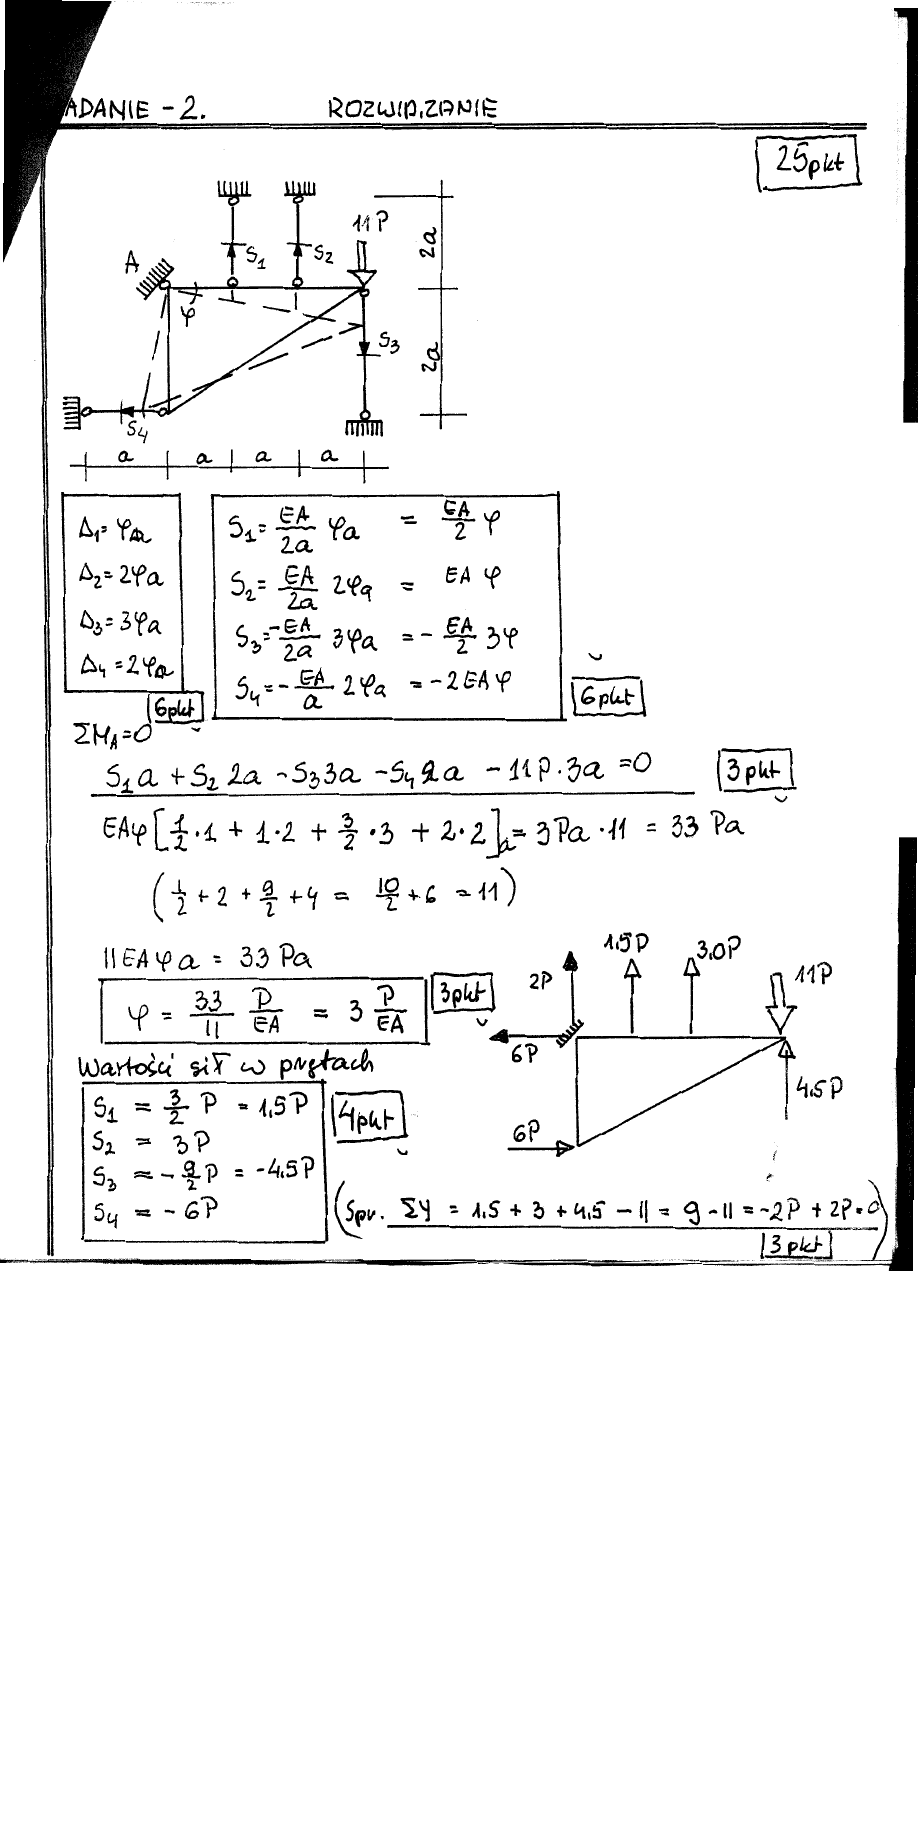 ADANIE - 2. ROZWIĄZANIE
25pkt
11P
A
S1
S2
2a
φ
S3
2a
S4
a a a a
Δ1 = φa
Δ2 = 2φa
Δ3 = 3φa
Δ4 = 2φa
6pkt
S1 = EA/2a φa = EA/2 φ
S2 = EA/2a 2φa = EA φ
S3 = -EA/2a 3φa = - EA/2 3φ
S4 = - EA/a 2φa = -2EAφ
6pkt
ΣMA=0
S1a + S2 2a - S3 3a - S4 2a - 11P·3a = 0
3pkt
EAφ[1/2·1 + 1·2 + 3/2·3 + 2·2]a = 3Pa·11 = 33 Pa
(1/2 + 2 + 9/2 + 4 = 10/2 + 6 = 11)
11EAφa = 33 Pa
φ = 33/11 P/EA = 3 P/EA
3pkt
Wartości sił w prętach
S1 = 3/2 P = 1,5P
S2 = 3P
S3 = - 9/2 P = -4,5P
S4 = - 6P
4pkt
2P
1.5P
3.0P
11P
6P
4.5P
6P
(Spr. ΣY = 1.5 + 3 + 4.5 - 11 = 9 - 11 = -2P + 2P = 0)
3pkt